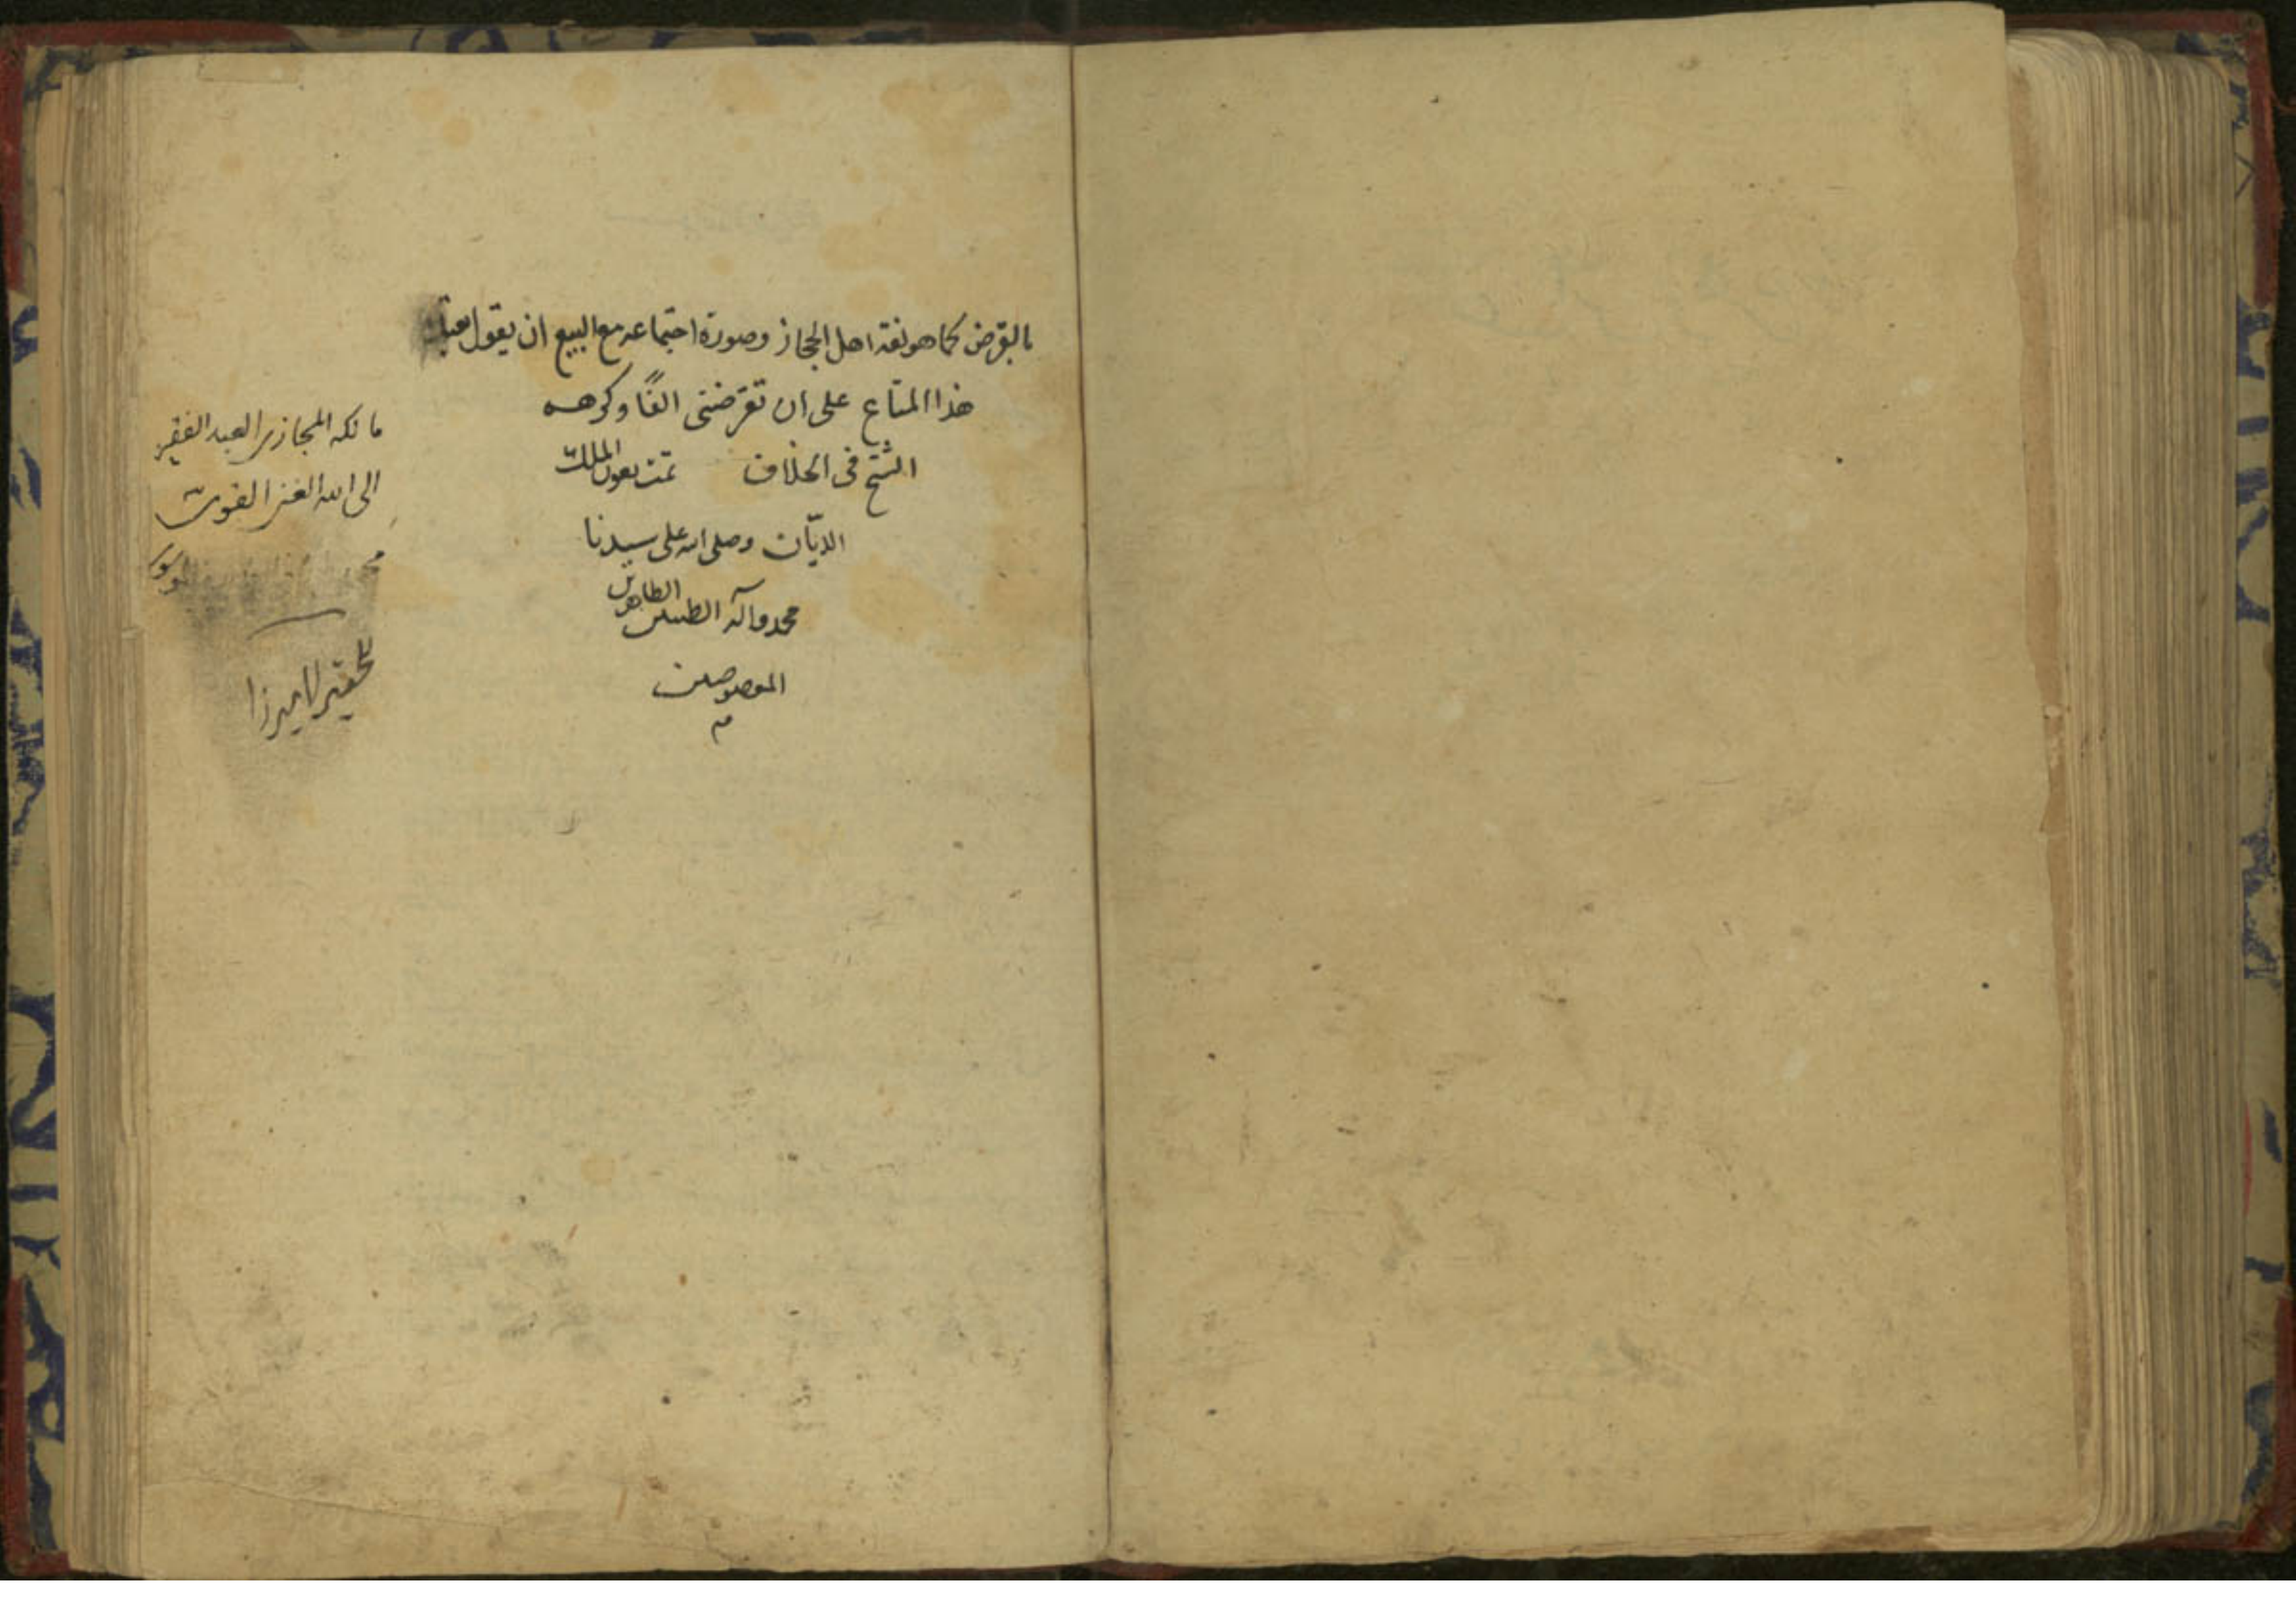 بالقرض كما هو لغة اهل الحجاز وصورة اجتماعه مع البيع ان يقول بعتك
هذا المتاع على ان تقرضنى الفًا وكرهه
الشيخ فى الخلاف تمت بعون الملك
الديّان وصلى الله على سيدنا
محمد وآله الطيبين الطاهرين
المعصومين
مالكه المجازى العبد الفقير
الى الله الغنى القوى
الموسوى